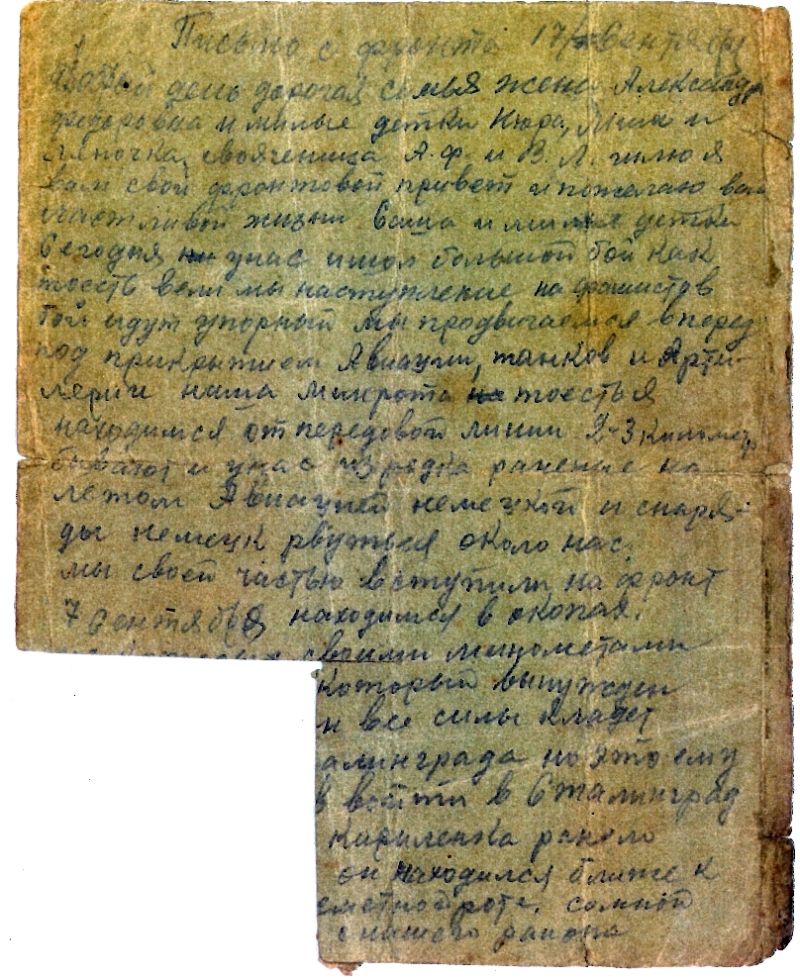 Письмо с фронта 17/ Сентября
Добрый день дорогая семья жена Александра
Федоровна и милые детки Нюра, Миша и
Леночка, своячennица А.Ф. и В.Л. шлю я
вам свой фронтовой привет и пожелаю вам
счастливой жизни Саша и милые детки
Сегодня унас ишол большой бой как
тоесть вели мы наступление на фашистов
бой идут упорный мы продвигаемся вперед
под прикрытием Авиации, танков и Арти-
лерии наша минрота тоесть я
находимся от передовой линии 2-3 километр
бывают и унас изредка ранение на
летом Авиацией немецкой и снаря-
ды немецк рвуться около нас.
мы своей частью вступили на фронт
7 Сентября находимся в окопах.
своими минометами
который вынужден
и все силы кладет
алинграда но это ему
в войти в Сталинград
Кириленка ранило
он находился ближе к
еметной роте. сомной
с нашего района